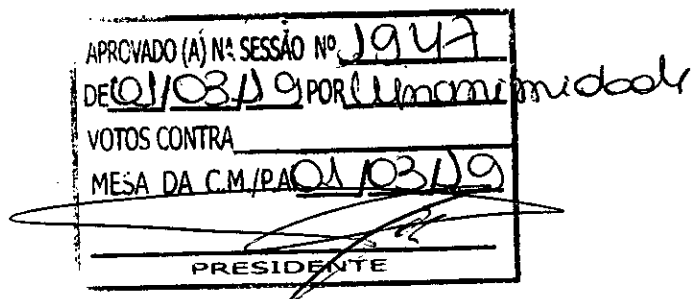 APROVADO (A) NA SESSÃO Nº 1947
DE 01/03/19 POR Unanimidade
VOTOS CONTRA
MESA DA C.M./P.A 01/03/19
PRESIDENTE